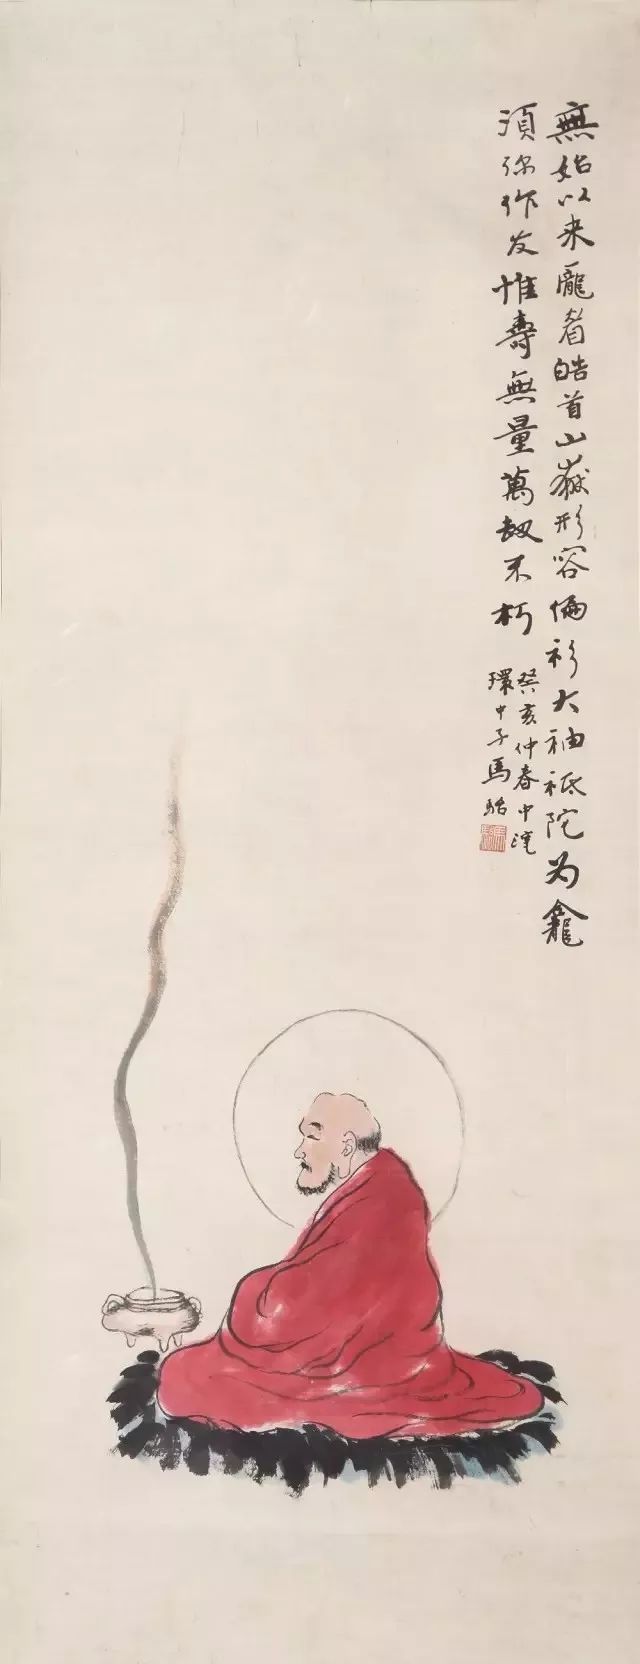 無始以来龐眉皓首山嶽形容偏衫大袖祇陀为龕
須弥作友惟壽無量萬劫不朽
癸亥仲春中浣
環中子馬駘